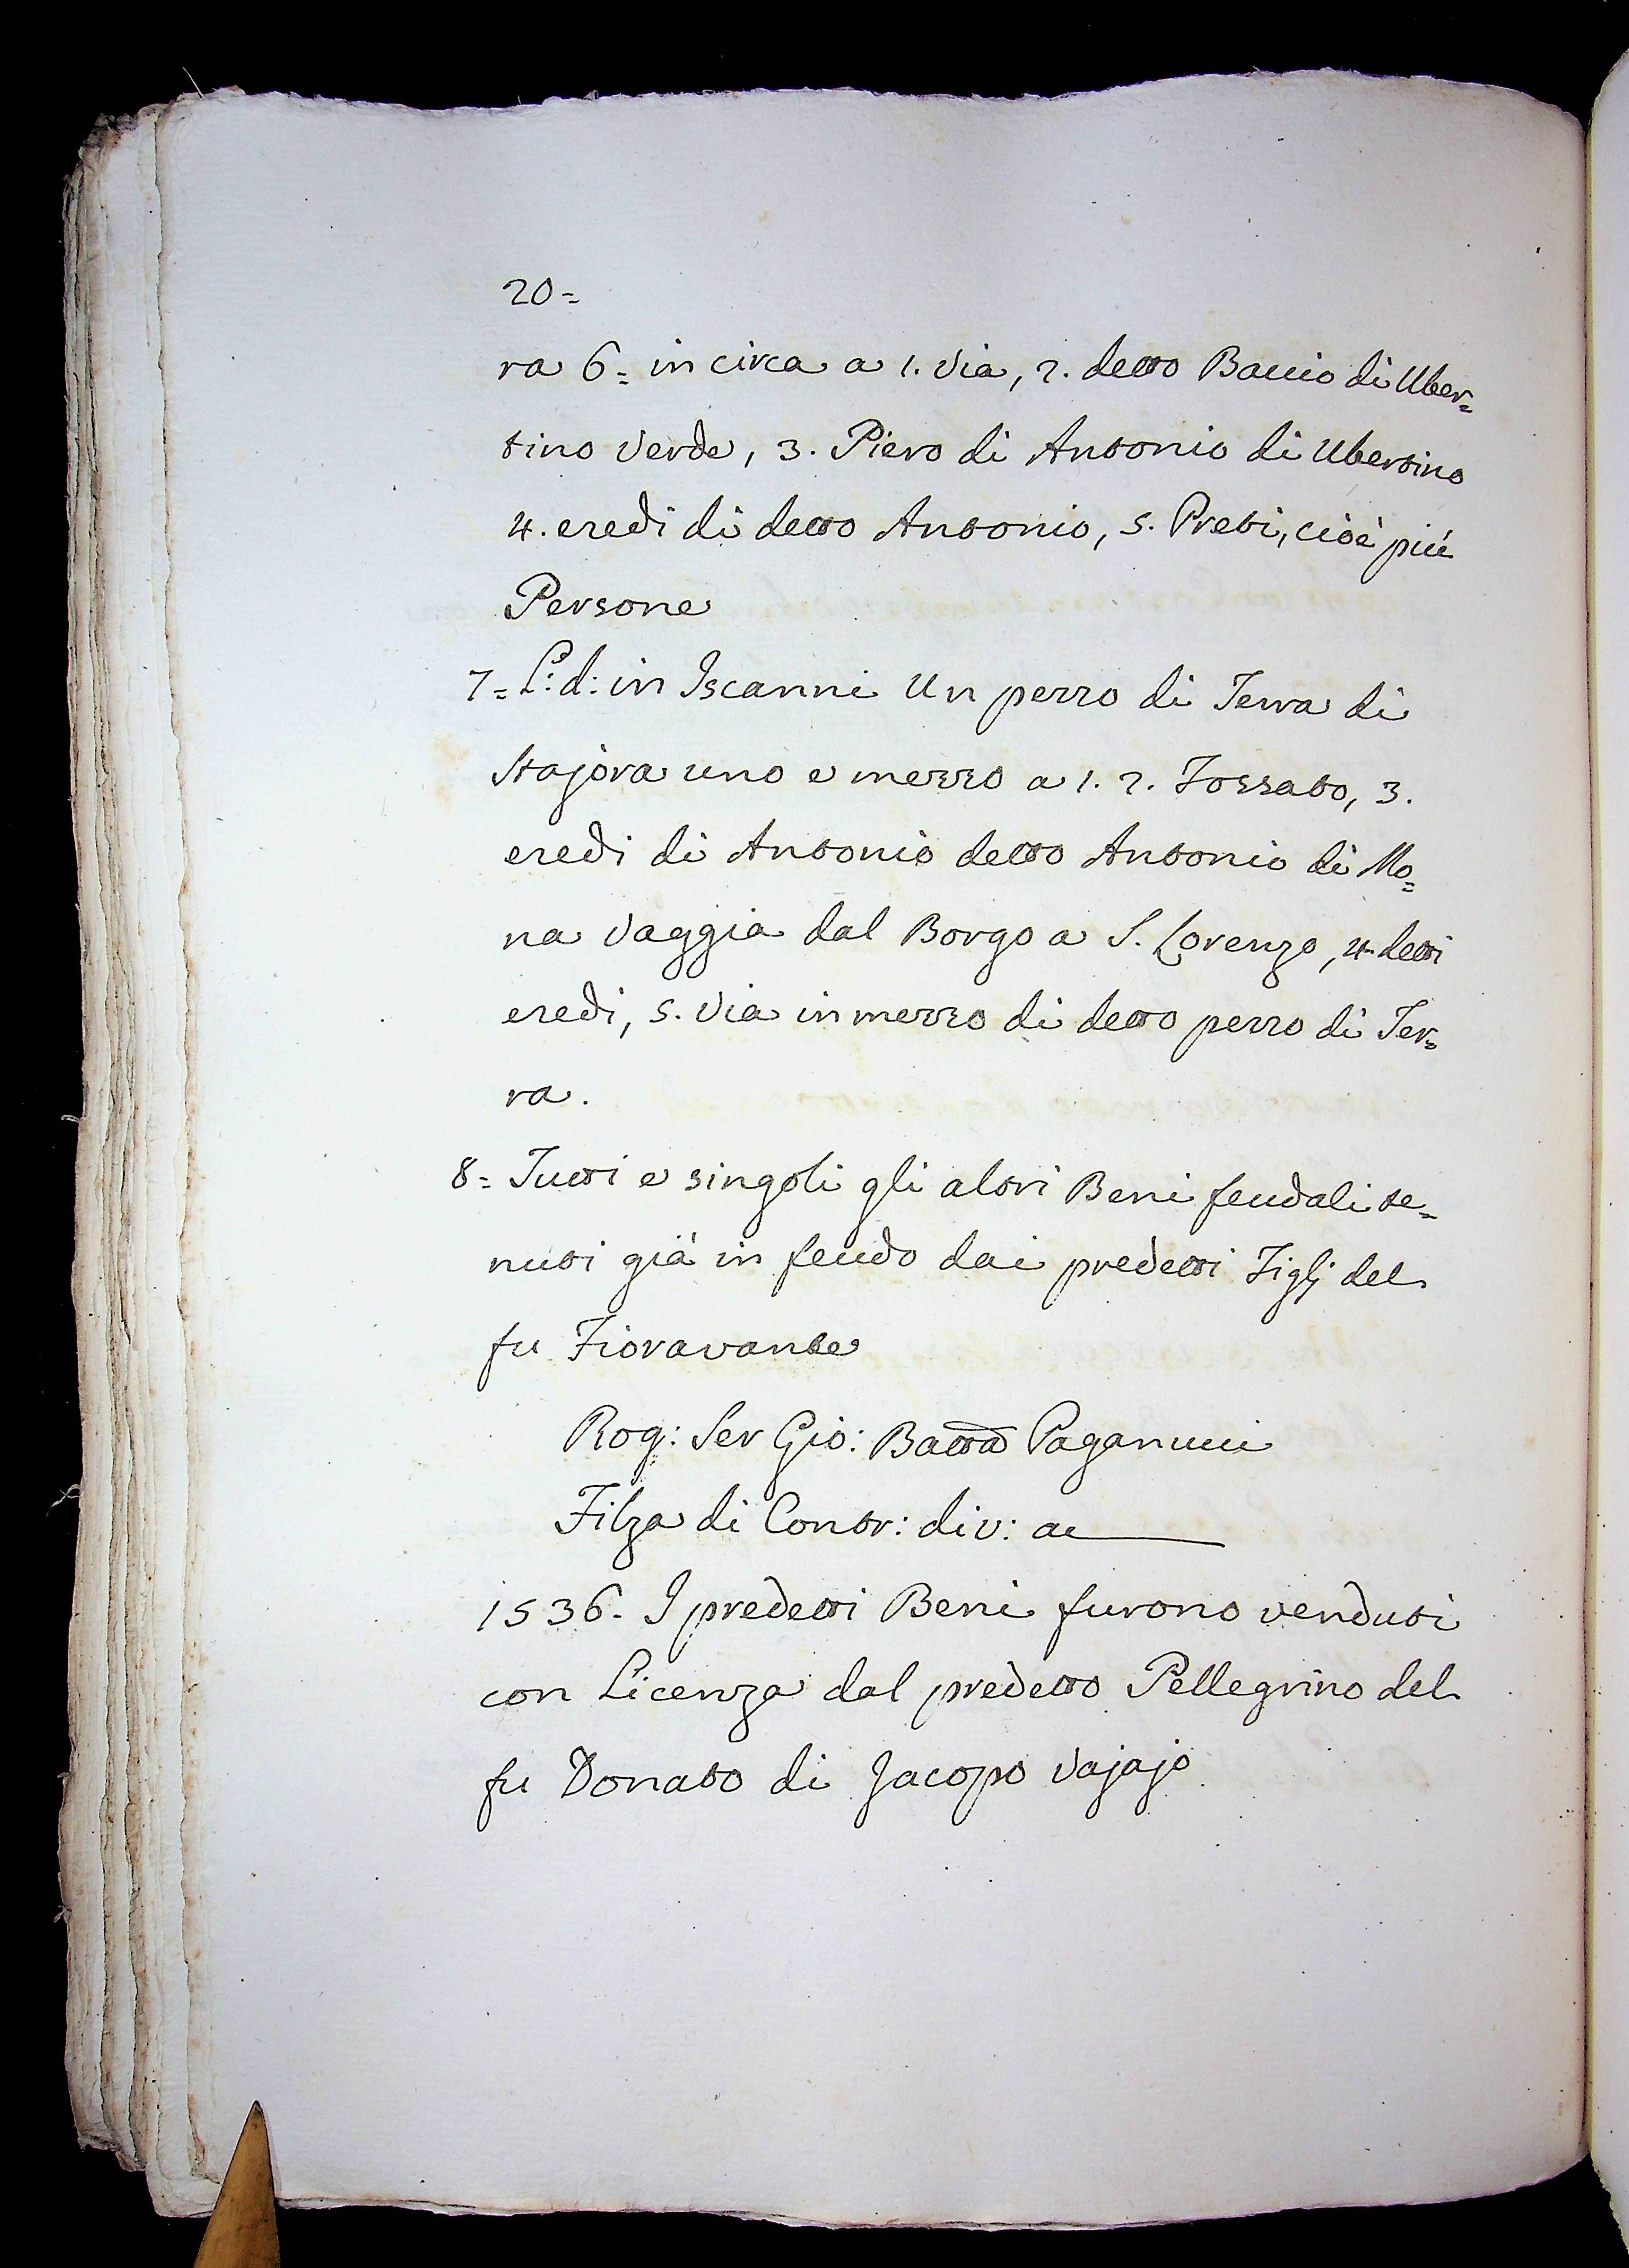 20=
ra 6= in circa a 1. Via, 2. detto Baccio di Uber=
tino Verde, 3. Piero di Antonio di Ubertino
4. eredi di detto Antonio, 5. Preti, cioè più
Persone
7= L: d: in Iscanni Un pezzo di Terra di
Stajora uno e mezzo a 1. 2. Fossato, 3.
eredi di Antonio detto Antonio di Mo=
na Vaggia dal Borgo a S. Lorenzo, 4. detti
eredi, 5. Via in mezzo di detto pezzo di Ter=
ra.
8= Tutti e singoli gli altri Beni feudali te=
nuti già in feudo dai predetti Figlj del
fu Fioravante
Rog: Ser Gio: Batta Paganucci
Filza di Contr: div: ac
1536. I predetti Beni furono venduti
con Licenza dal predetto Pellegrino del
fu Donato di Jacopo Vajajo